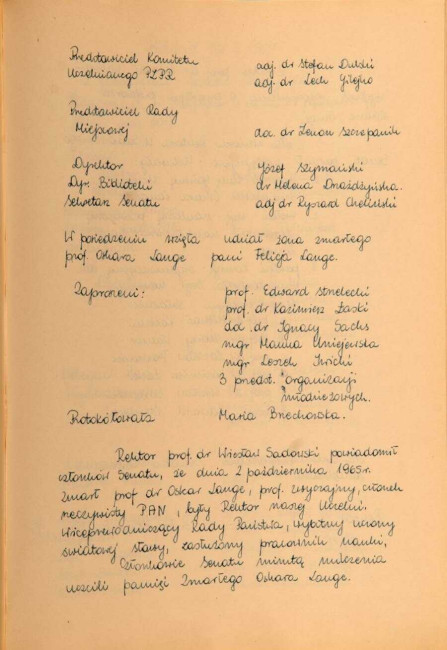 Przedstawiciel Komitetu adj. dr Stefan Dulski
Uczelnianego PZPR adj. dr Lech Gilejko
Przedstawiciel Rady
Miejscowej doc. dr Zenon Szczepanik
Dyrektor Józef Szymański
Dyr. Biblioteki dr Helena Drażdżyńska.
Sekretarz Senatu adj dr Ryszard Cheliński
W posiedzeniu wzięła udział żona zmarłego
prof. Oskara Lange pani Felicja Lange.
Zaproszeni: prof. Edward Strzelecki
prof. dr Kazimierz Łaski
doc. dr Ignacy Sachs
mgr Hanna Uniejewska
mgr Leszek
3 przedst. organizacji
młodzieżowych.
Protokółowała Maria Brzechowska.
Rektor prof. dr Wiesław Sadowski powiadomił
członków Senatu, że dnia 2 października 1965 r.
zmarł prof dr Oskar Lange, prof. zwyczajny, członek
rzeczywisty PAN, były Rektor naszej Uczelni.
Wiceprzewodniczący Rady Państwa, wybitny uczony
światowej sławy, zasłużony pracownik nauki,
Członkowie Senatu minutą milczenia
uczcili pamięć Zmarłego Oskara Lange.